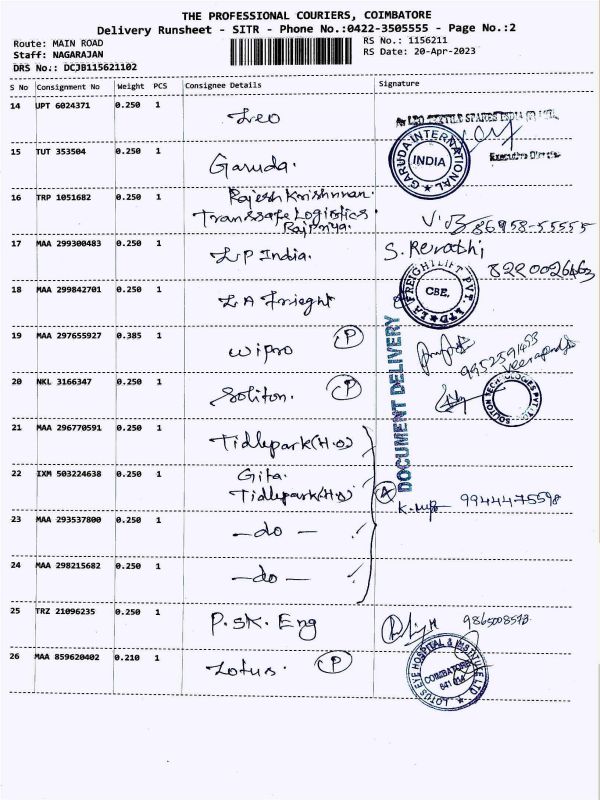 THE PROFESSIONAL COURIERS, COIMBATORE
Delivery Runsheet - SITR - Phone No.:0422-3505555 - Page No.:2
Route: MAIN ROAD
RS No.: 1156211
Staff: NAGARAJAN
RS Date: 20-Apr-2023
DRS No.: DCJB115621102
S No Consignment No Weight PCS Consignee Details Signature
14 UPT 6024371 0.250 1 Leo
15 TUT 353504 0.250 1 Garuda.
GARUDA INTERNATIONAL
INDIA
Executive Director
16 TRP 1051682 0.250 1 Rajesh Krishnnan.
Transsafe Logistics
86958-55555
17 MAA 299300483 0.250 1 L P India.
S. Revathi
8220026463
18 MAA 299842701 0.250 1 L A Frieght
LA FREIGHTLIFT PVT. LTD
CBE.
19 MAA 297655927 0.385 1 Wipro P
20 NKL 3166347 0.250 1 Soliton. P
SOLITON TECHNOLOGIES PVT.
DOCUMENT DELIVERY
21 MAA 296770591 0.250 1 Tidlepark(H.O)
22 IXM 503224638 0.250 1 Gita.
Tidlepark(H.O) A
9944475598
23 MAA 293537800 0.250 1 -do-
24 MAA 298215682 0.250 1 -do-
25 TRZ 21096235 0.250 1 P.SK. Eng
26 MAA 859620402 0.210 1 Lotus. P
LOTUS EYE HOSPITAL & INSTITUTE LTD
COIMBATORE
641 014